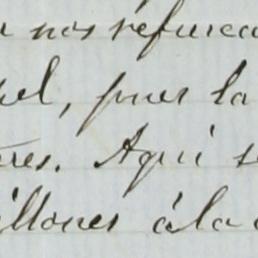 nos refuerza
el, pues la
res. Aqui se
illones á la